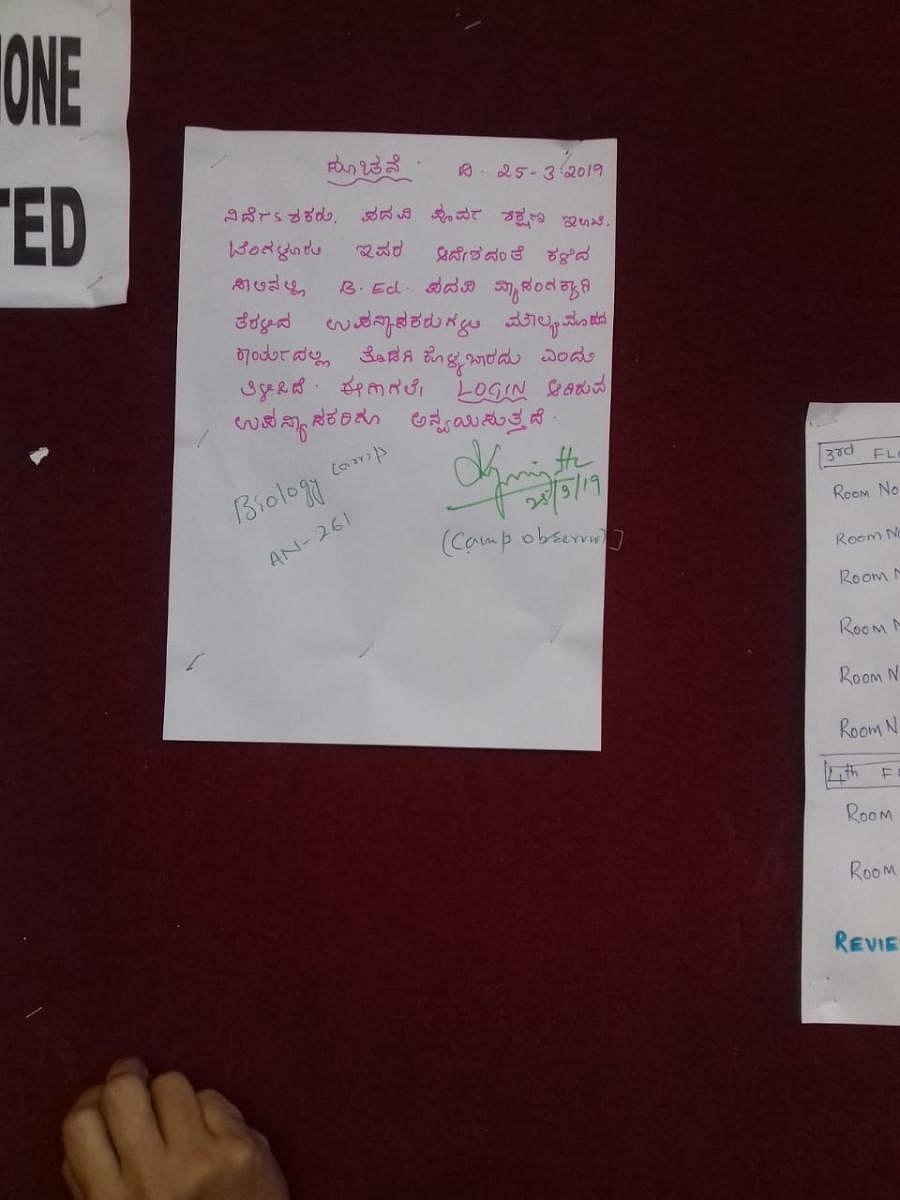 IONE
TED
ಸೂಚನೆ. ದಿ. 25-3-2019
ನಿರ್ದೇಶಕರು, ಪದವಿ ಪೂರ್ವ ಶಿಕ್ಷಣ ಇಲಾಖೆ,
ಬೆಂಗಳೂರು ಇವರ ಆದೇಶದಂತೆ ಕಳೆದ
ಸಾಲಿನಲ್ಲಿ B.Ed. ಪದವಿ ವ್ಯಾಸಂಗಕ್ಕಾಗಿ
ತೆರಳಿದ ಉಪನ್ಯಾಸಕರುಗಳು ಮೌಲ್ಯಮಾಪನ
ಕಾರ್ಯದಲ್ಲಿ ತೊಡಗಿ ಕೊಳ್ಳಬಾರದು ಎಂದು
ತಿಳಿಸಿದೆ. ಈಗಾಗಲೇ LOGIN ಆಗಿರುವ
ಉಪನ್ಯಾಸಕರಿಗೂ ಅನ್ವಯಿಸುತ್ತದೆ.
25/3/19
Biology Camp
AN-261
(Camp observer)
3rd FLO
ROOM No
ROOM No
ROOM N
ROOM N
ROOM N
ROOM N
4th F
ROOM
ROOM
REVIE